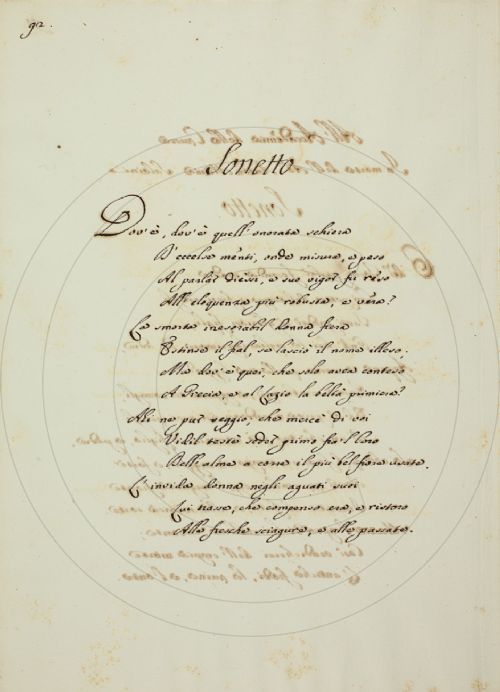 92
Sonetto
Dov'è, dov'è quell'onorata schiera
D'eccelse menti, onde misura, e peso
Al parlar diessi, e suo vigor fu reso
All'eloquenza più robusta, e vera?
La morte inesorabil donna fiera
Estinse il fral, se lasciò il nome illeso.
Ma dov'è quei, che solo avea conteso
A Grecia, e al Lazio la beltà primiera?
Ahi ne pur veggio, che mercè di voi
Vidil testè seder primo fra l loro
Bell'alme a corre il più bel fiore usate.
L'invida donna negli aguati suoi
Lui trasse, che compenso era, e ristoro
Alle fresche sciagure, e alle passate.
All' Accademia della
Sonetto